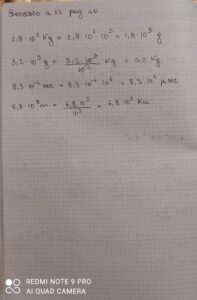 Esercizio n 12 pag. 40
1,8 · 10² Kg = 1,8 · 10² · 10³ = 1,8 · 10⁵ g
3,2 · 10³ g = 3,2 · 10³ / 10³ Kg = 3,2 Kg
8,3 · 10⁻⁴ sec = 8,3 · 10⁻⁴ · 10⁶ = 8,3 · 10² μsec
6,8 · 10⁵ m = 6,8 · 10⁵ / 10³ = 6,8 · 10² Km
REDMI NOTE 9 PRO
AI QUAD CAMERA